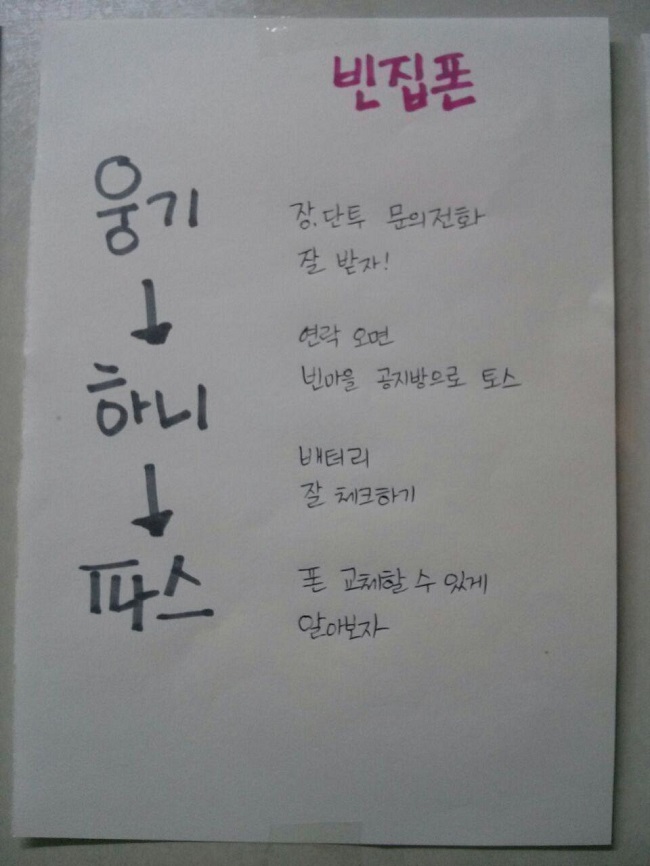 빈집폰
웅기
↓
하니
↓
파스
장.단투 문의전화
잘 받자!
연락 오면
빈마을 공지방으로 토스
배터리
잘 체크하기
폰 교체할 수 있게
알아보자